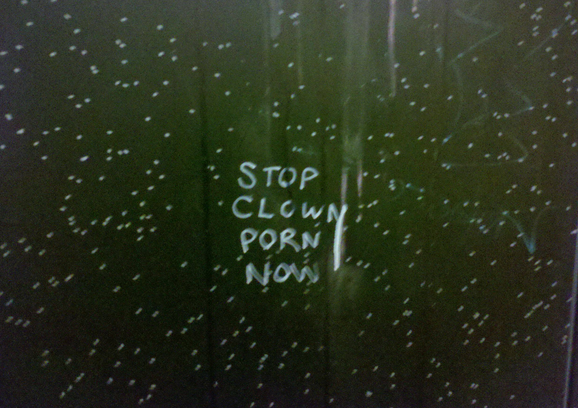 STOP
CLOWN
PORN
NOW